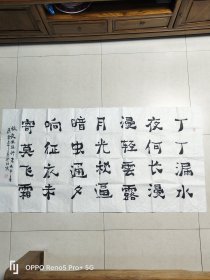 丁丁漏水
夜何长漫
漫轻雲露
月光秋逼
暗虫通夕
响征衣未
寄莫飞霜
OPPO Reno5 Pro+ 5G